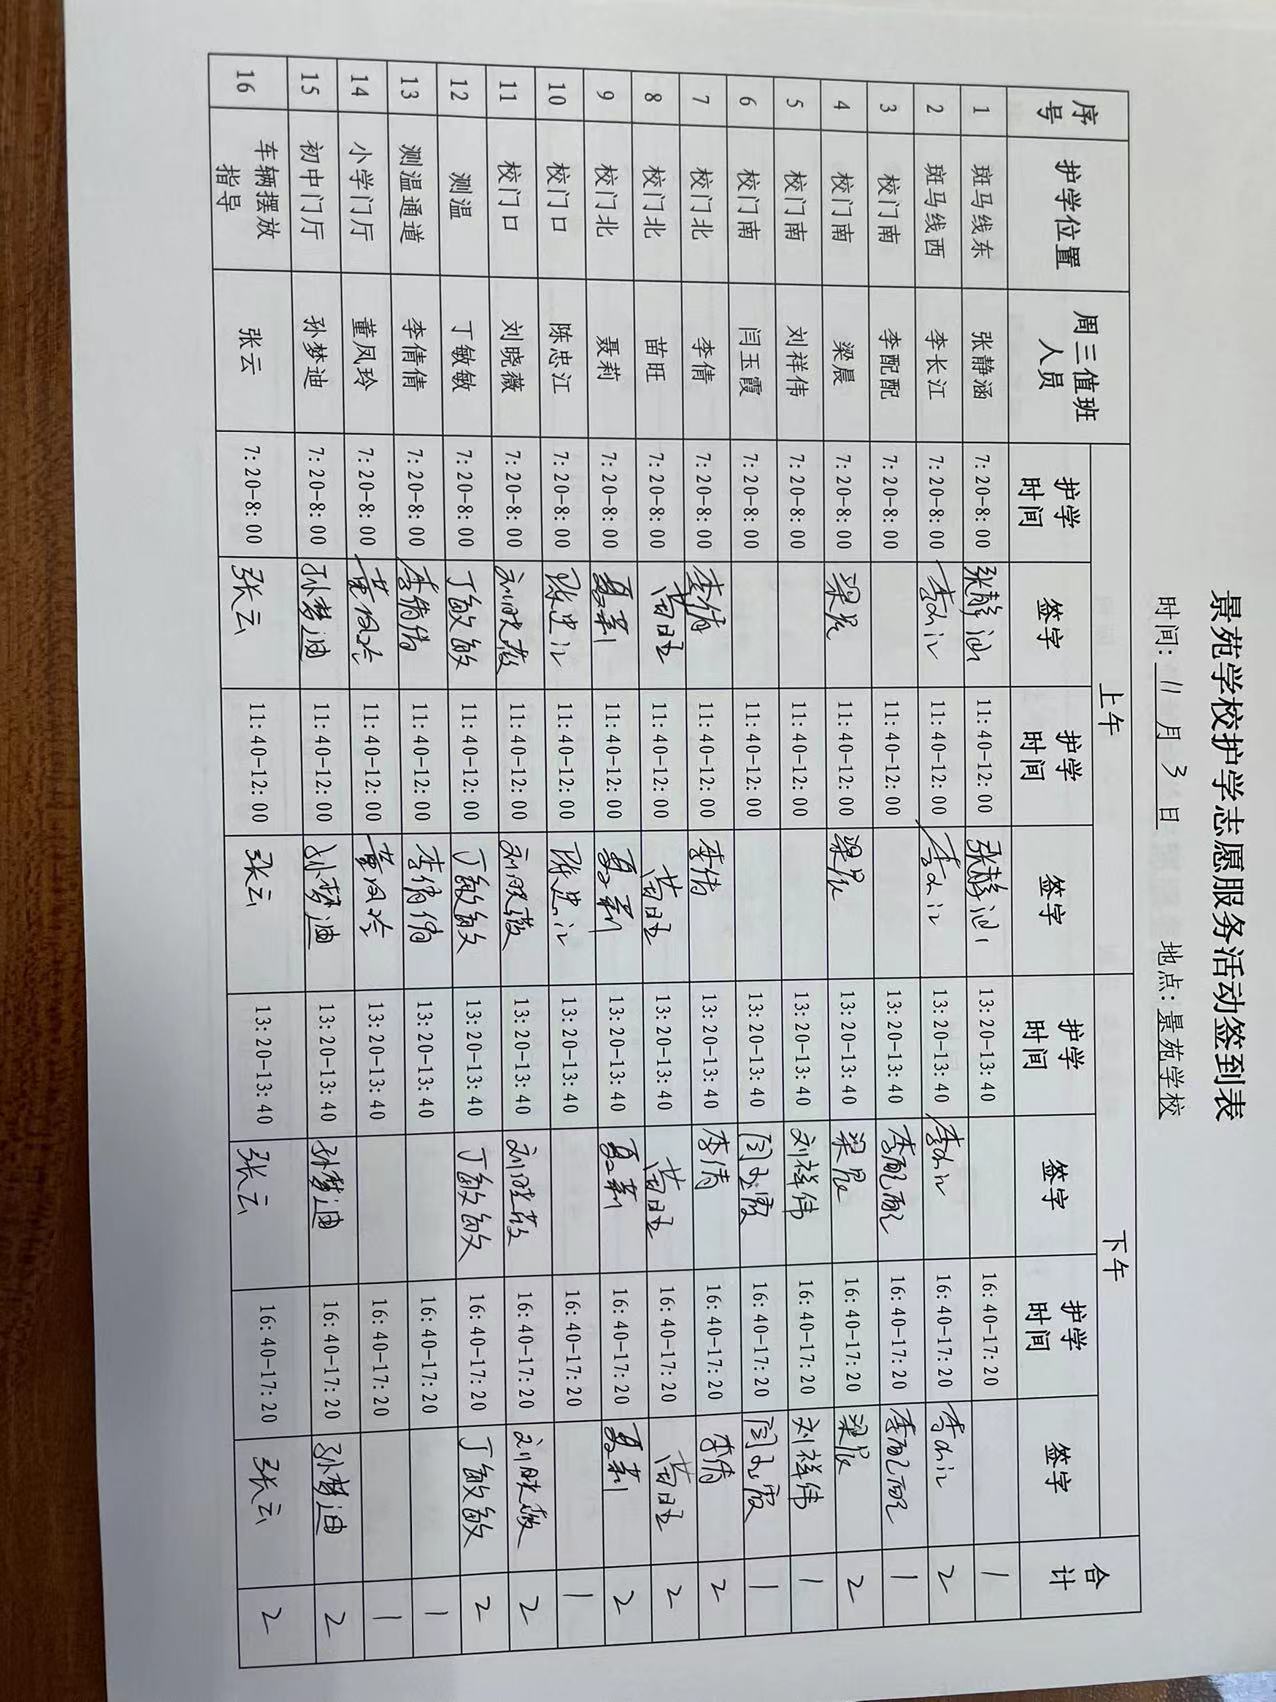 景苑学校护学志愿服务活动签到表
时间: 11 月 3 日 地点: 景苑学校
序号 护学位置 周三值班人员 上午 下午 合计
护学时间 签字 护学时间 签字 护学时间 签字 护学时间 签字
1 斑马线东 张静涵 7:20-8:00 张静涵 11:40-12:00 张静涵 13:20-13:40 16:40-17:20 1
2 斑马线西 李长江 7:20-8:00 李长江 11:40-12:00 李长江 13:20-13:40 李长江 16:40-17:20 李长江 2
3 校门南 李配配 7:20-8:00 11:40-12:00 13:20-13:40 李配配 16:40-17:20 李配配 1
4 校门南 梁晨 7:20-8:00 梁晨 11:40-12:00 梁晨 13:20-13:40 梁晨 16:40-17:20 梁晨 2
5 校门南 刘祥伟 7:20-8:00 11:40-12:00 13:20-13:40 刘祥伟 16:40-17:20 刘祥伟 1
6 校门南 闫玉霞 7:20-8:00 11:40-12:00 13:20-13:40 闫玉霞 16:40-17:20 闫玉霞 1
7 校门北 李倩 7:20-8:00 李倩 11:40-12:00 李倩 13:20-13:40 李倩 16:40-17:20 李倩 2
8 校门北 苗旺 7:20-8:00 苗旺 11:40-12:00 苗旺 13:20-13:40 苗旺 16:40-17:20 苗旺 2
9 校门北 聂莉 7:20-8:00 聂莉 11:40-12:00 聂莉 13:20-13:40 聂莉 16:40-17:20 聂莉 2
10 校门口 陈忠江 7:20-8:00 陈忠江 11:40-12:00 陈忠江 13:20-13:40 16:40-17:20 1
11 校门口 刘晓薇 7:20-8:00 刘晓薇 11:40-12:00 刘晓薇 13:20-13:40 刘晓薇 16:40-17:20 刘晓薇 2
12 测温 丁敏敏 7:20-8:00 丁敏敏 11:40-12:00 丁敏敏 13:20-13:40 丁敏敏 16:40-17:20 丁敏敏 2
13 测温通道 李倩倩 7:20-8:00 李倩倩 11:40-12:00 李倩倩 13:20-13:40 16:40-17:20 1
14 小学门厅 董凤玲 7:20-8:00 董凤玲 11:40-12:00 董凤玲 13:20-13:40 16:40-17:20 1
15 初中门厅 孙梦迪 7:20-8:00 孙梦迪 11:40-12:00 孙梦迪 13:20-13:40 孙梦迪 16:40-17:20 孙梦迪 2
16 车辆摆放指导 张云 7:20-8:00 张云 11:40-12:00 张云 13:20-13:40 张云 16:40-17:20 张云 2